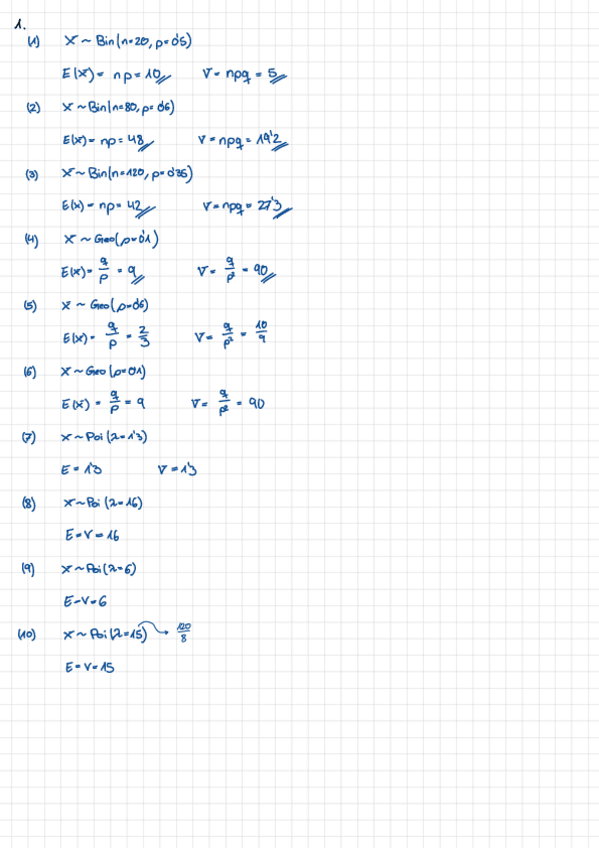 1.
(1) X ~ Bin(n=20, p=0'5)
E(X) = np = 10 V = npq = 5
(2) X ~ Bin(n=80, p=0'6)
E(X) = np = 48 V = npq = 19'2
(3) X ~ Bin(n=120, p=0'35)
E(X) = np = 42 V = npq = 27'3
(4) X ~ Geo(p=0'1)
E(X) = q/p = 9 V = q/p² = 90
(5) X ~ Geo(p=0'6)
E(X) = q/p = 2/3 V = q/p² = 10/9
(6) X ~ Geo(p=0'1)
E(X) = q/p = 9 V = q/p² = 90
(7) X ~ Poi(λ=1'3)
E = 1'3 V = 1'3
(8) X ~ Poi(λ=16)
E = V = 16
(9) X ~ Poi(λ=6)
E = V = 6
(10) X ~ Poi(λ=15) → 120/8
E = V = 15